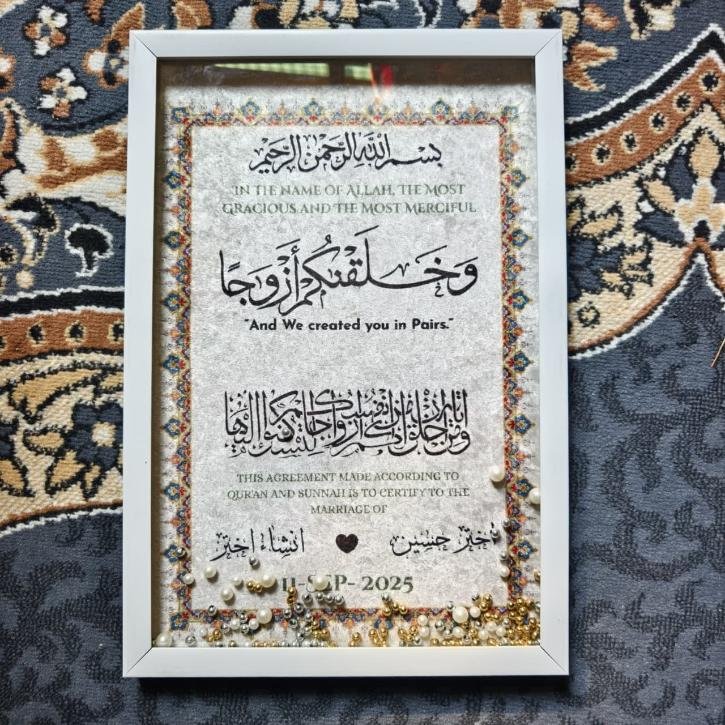 بسم الله الرحمن الرحيم
IN THE NAME OF ALLAH, THE MOST
GRACIOUS AND THE MOST MERCIFUL
وَخَلَقْنَٰكُمْ أَزْوَٰجًا
"And We created you in Pairs."
THIS AGREEMENT MADE ACCORDING TO
QUR'AN AND SUNNAH IS TO CERTIFY TO THE
MARRIAGE OF
انشاء اختر ♥ اختر حسین
11-SEP- 2025